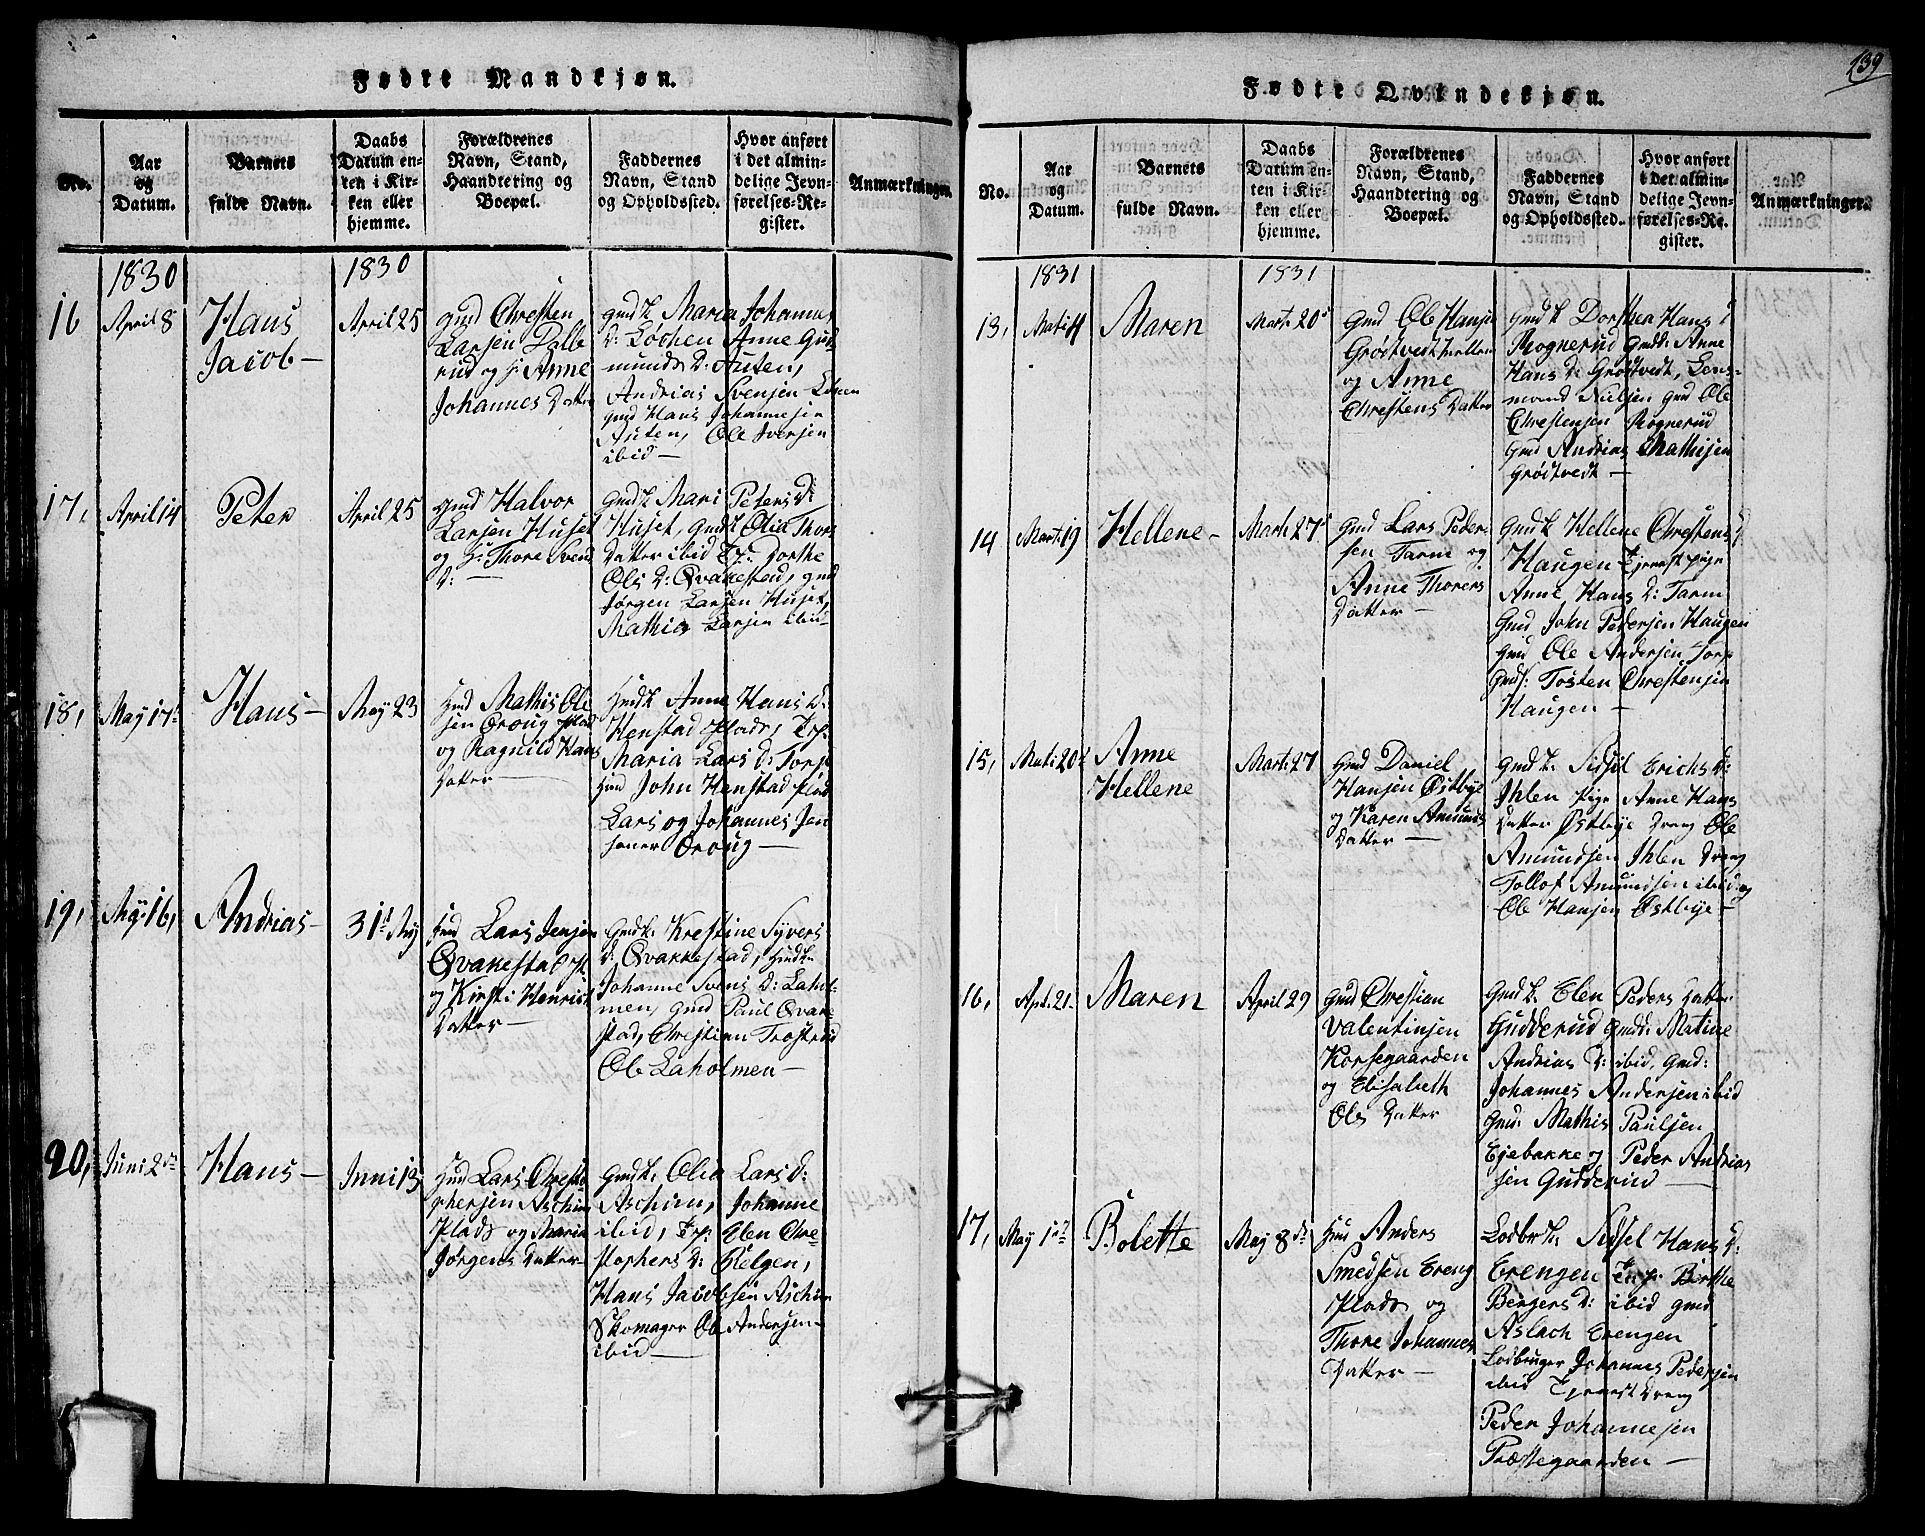 Fødte Mandkjøn.
No.
Aar
og
Datum.
Barnets
fulde Navn.
Daabs
Datum en-
ten i Kir-
ken eller
hjemme.
Forældrenes
Navn, Stand,
Haandtering og
Boepæl.
Faddernes
Navn, Stand
og Opholdssted.
Hvor anført
i det almin-
delige Jevn-
førelses-Re-
gister.
Anmærkninger.
1830
1830
16
April 8
Hans
Jacob -
April 25
Gmd Chresten
Larsen Dalbe
rud og H: Anne
Johannes Datter
Gmdk Maria Johannes
D: Løchen Anne Gud
munds D: Austen,
Andrias Svensen Løken
gmd Hans Johannesen
Austen, Ole Iversen
ibid -
17,
April 14
Peter
April 25
Gmd Halvor
Larsen Huset
og H: Thore Svend
D: -
Gmdk Mari Peters D:
Huset, Gmdk Olia Thor
Datter ibid Tp: Dorthe
Ols D: Qvakestad, gmd
Jørgen Larsen Huset,
Mathia Larsen ibid -
18,
May 17de
Hans -
May 23
Hmd Mathis Ole
sen Oroug Plad
og Ragnild Hans
Datter -
Hmdk Anne Hans D:
Henstad Plads, Tp:
Maria Lars D: Torp
Hmd John Henstad plad
Lars og Johannes Jen
sener Oroug -
19,
May 16,
Andrias -
31te May
Hmd Lars Jensen
Qvakestad Pl
og Kirsti Henrich
Datter -
Gmdk: Krestine Syvers
D: Qvakkestad, Hmdk
Johanne Svens D: Lahol
men, Gmd Paul Qvake
stad, Chrestian Trostrud
Ole Laholmen -
20,
Juni 2den
Hans -
Juni 13
Hmd Lars Chresto
phersen Aschim
Plads og Maria
Jørgens Datter -
Gmdk: Olia Lars D:
Aschim, Johanne
ibid, Tp: Elen Chre
stophers D: Helgen,
Hans Jacobsen Aschim
Skomager Ole Andersen -
ibid -
139
Fødte Qvindekjøn.
No.
Aar
og
Datum.
Barnets
fulde Navn.
Daabs
Datum en-
ten i Kir-
ken eller
hjemme.
Forældrenes
Navn, Stand,
Haandtering og
Boepæl.
Faddernes
Navn, Stand
og Opholdssted.
Hvor anført
i det almin-
delige Jevn-
førelses-Re-
gister.
Anmærkninger.
1831
1831
13,
Maren
Mart: 20de
Gmd Ole Hansen
Grødtvedt mellem
og Anne
Chrestens Datter
Gmdk Dorthea Hans D
Rognerud Gmdk: Anne
Hans D: Grødtvedt, Lens-
mand Nielsen Gmd Ole
Chrestensen Rognerud
Gmd Andrias Mathisen
Grødtvedt -
14
Mart: 19
Hellene -
Mart: 27de
Gmd Lars Peder-
sen Tarm og
Anne Thorers
Datter -
Gmdk Hellene Chrestens D
Haugen Tjenestpige
Anne Hans D: Tarm
Gmd John Pedersen Haugen
Hmd Ole Andersen Torp
Gmds: Tosten Chrestensen
Haugen -
15,
Mart: 20de
Anne
Hellene
Mart: 27
Hmd Daniel
Hansen Østbye
og Karen Amunds
Datter -
Gmdk. Sissil Erichs D:
Ihlen Pige Anne Hans
Datter Østbye Dreng Ole
Amundsen Ihlen Dreng
Tollof Amundsen ibid og
Ole Hansen Østbye -
16,
Apr: 21.
Maren
April 29
Gmd Christian
Valentinsen
Korsegaarden
og Elisabeth
Ols Datter
Gmdk. Elen Peders Datter
Gudderud Gmdd: Matine
Andrias D: ibid, Gmd:
Johannes Andersen ibid
Gmd: Mathis Paulsen
Ejebakke og Peder Andrias
sen Gudderud -
17,
May 1ste
Bolette
May 8de
Hmd Anders
Smedsen Ereng
Plads og
Thore Johannes
Datter -
Lodbrk. Sissel Hans D:
Erengen Tnp: Birthe
Bergers D: ibid gmd
Aslach Erengen
Lodbruger Johannes Pedersen
ibid Tjenest Dreng
Peder Johannesen
Præstegaarden -